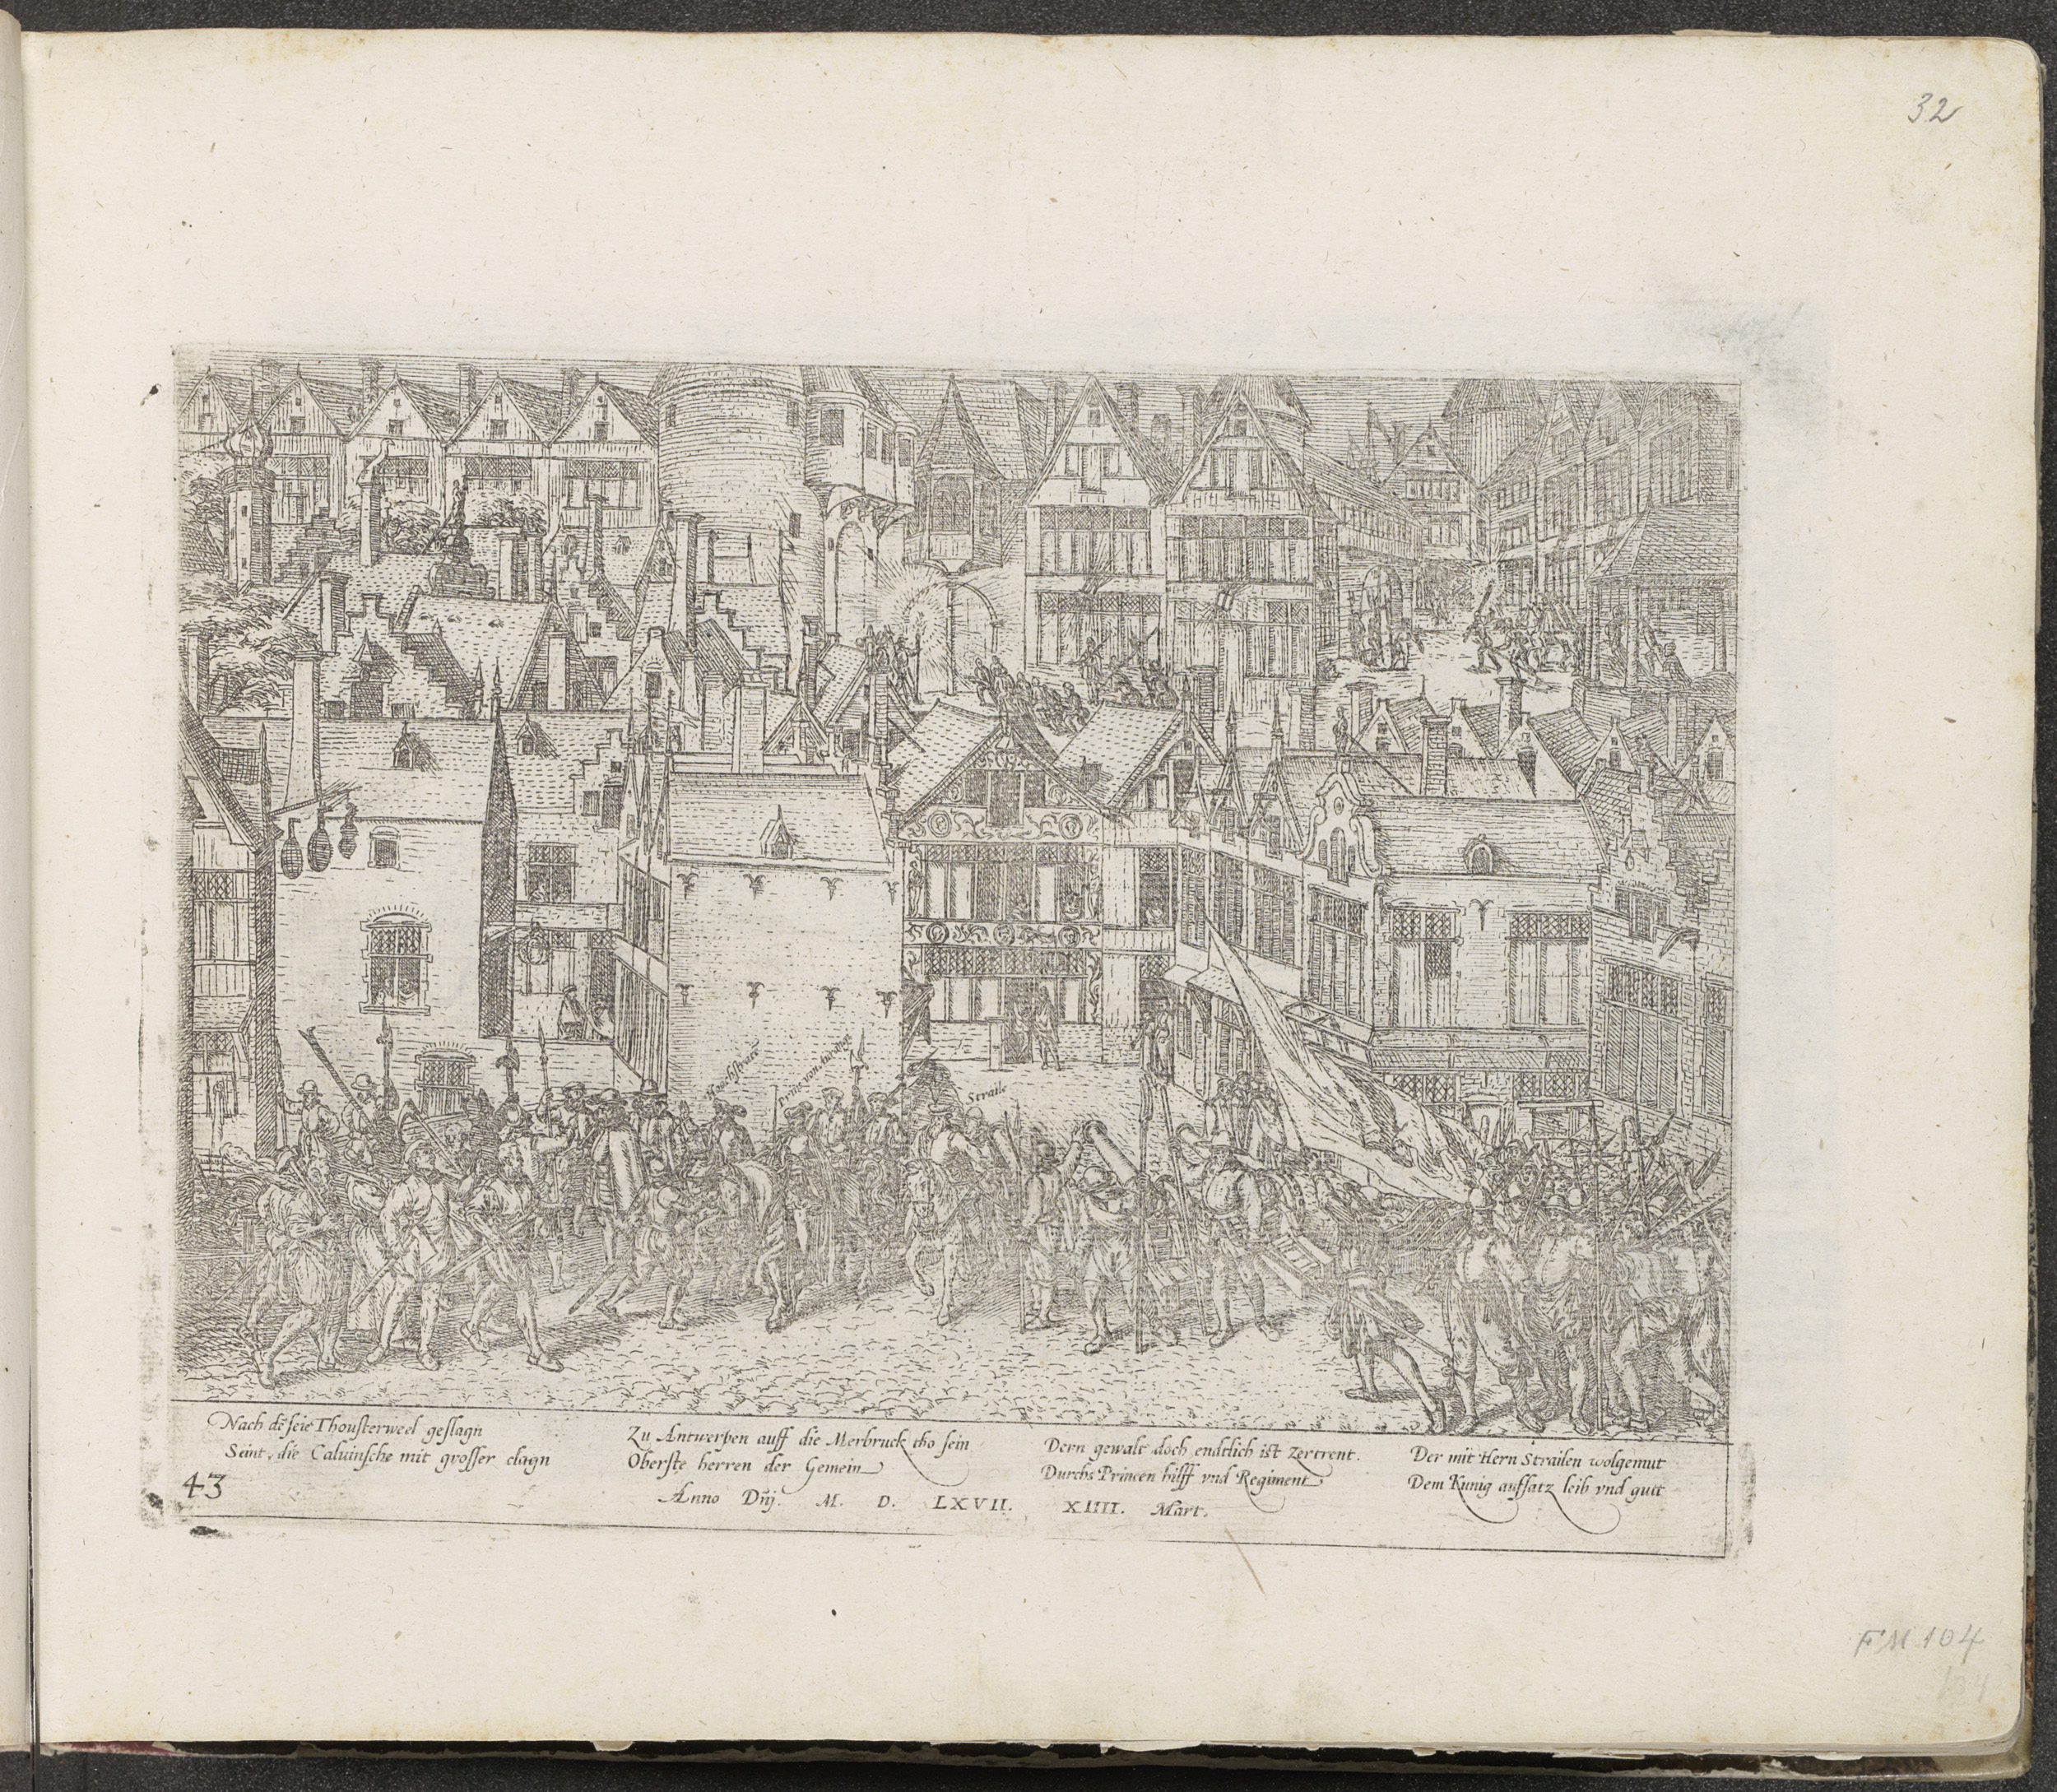 32
Hoochstrate
Prince von
Straile
Nach dẽ seie Thousterweel geslagn
Seint, die Caluinsche mit grosser clagn
Zu Antwerpen auff die Merbruck tho sein
Oberste herren der Gemein
Dern gewalt doch endtlich ist zertrent.
Durchs Princen hilff vnd Regiment
Der mit Hern Strailen wolgemut
Dem Kunig auffsatz leib vnd gutt
43
Anno Dnj. M. D. LXVII. XIIII. Mart.
FM 104
104